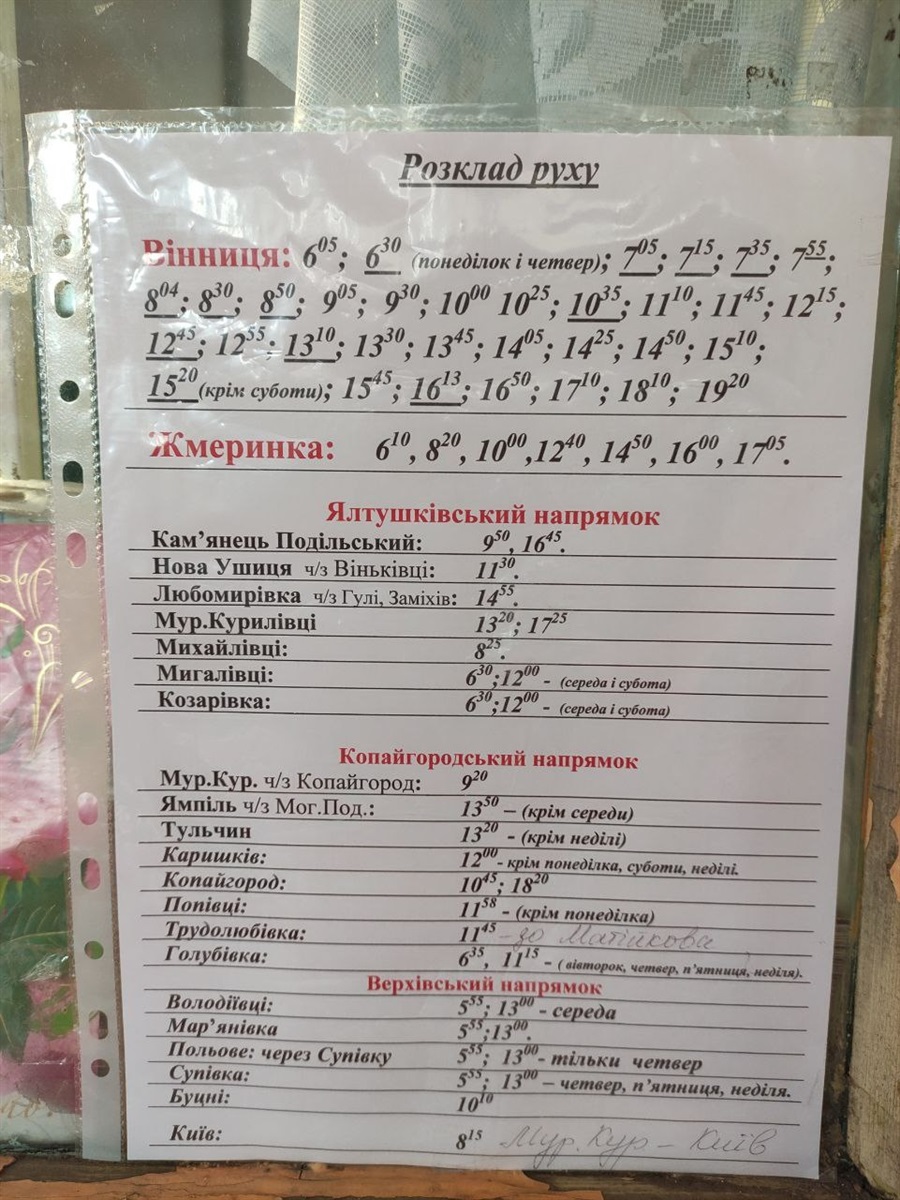 Розклад руху
Вінниця: 6⁰⁵; 6³⁰ (понеділок і четвер); 7⁰⁵; 7¹⁵; 7³⁵; 7⁵⁵;
8⁰⁴; 8³⁰; 8⁵⁰; 9⁰⁵; 9³⁰; 10⁰⁰ 10²⁵; 10³⁵; 11¹⁰; 11⁴⁵; 12¹⁵;
12⁴⁵; 12⁵⁵; 13¹⁰; 13³⁰; 13⁴⁵; 14⁰⁵; 14²⁵; 14⁵⁰; 15¹⁰;
15²⁰ (крім суботи); 15⁴⁵; 16¹³; 16⁵⁰; 17¹⁰; 18¹⁰; 19²⁰
Жмеринка: 6¹⁰, 8²⁰, 10⁰⁰,12⁴⁰, 14⁵⁰, 16⁰⁰, 17⁰⁵.
Ялтушківський напрямок
Кам’янець Подільський: 9⁵⁰, 16⁴⁵.
Нова Ушиця ч/з Віньківці: 11³⁰.
Любомирівка ч/з Гулі, Заміхів: 14⁵⁵.
Мур.Курилівці 13²⁰; 17²⁵
Михайлівці: 8²⁵.
Мигалівці: 6³⁰;12⁰⁰ - (середа і субота)
Козарівка: 6³⁰;12⁰⁰ - (середа і субота)
Копайгородський напрямок
Мур.Кур. ч/з Копайгород: 9²⁰
Ямпіль ч/з Мог.Под.: 13⁵⁰ – (крім середи)
Тульчин 13²⁰ - (крім неділі)
Каришків: 12⁰⁰ - крім понеділка, суботи, неділі.
Копайгород: 10⁴⁵; 18²⁰
Попівці: 11⁵⁸ - (крім понеділка)
Трудолюбівка: 11⁴⁵ - до Матійкова
Голубівка: 6³⁵, 11¹⁵ - ( вівторок, четвер, п’ятниця, неділя).
Верхівський напрямок
Володіївці: 5⁵⁵; 13⁰⁰ - середа
Мар’янівка 5⁵⁵;13⁰⁰.
Польове: через Супівку 5⁵⁵; 13⁰⁰- тільки четвер
Супівка: 5⁵⁵; 13⁰⁰ – четвер, п’ятниця, неділя.
Буцні: 10¹⁰
Київ: 8¹⁵ Мур.Кур – Київ